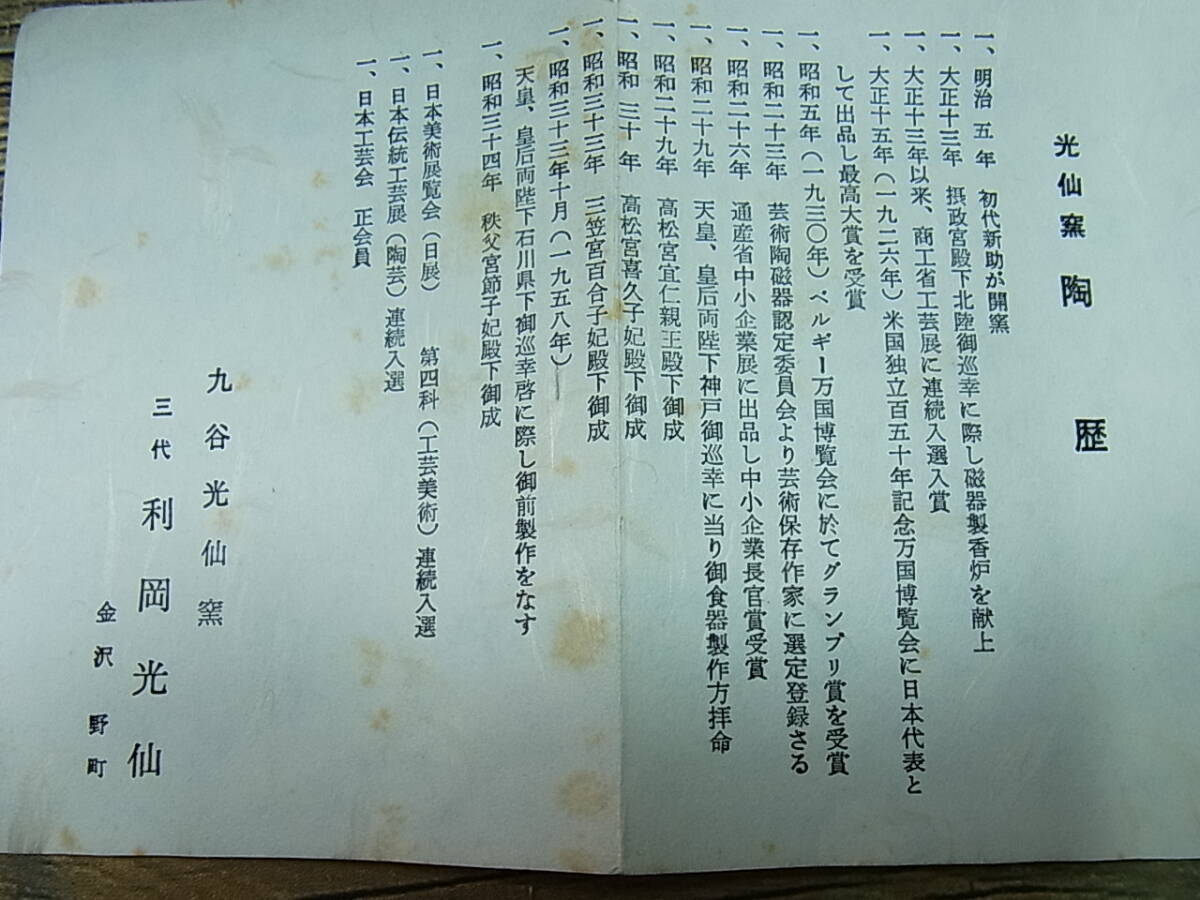 光仙窯 陶歴
一、明治 五 年 初代新助が開窯
一、大正十三年 摂政宮殿下北陸御巡幸に際し磁器製香炉を献上
一、大正十三年以来、商工省工芸展に連続入選入賞
一、大正十五年(一九二六年)米国独立百五十年記念万国博覧会に日本代表と
して出品し最高大賞を受賞
一、昭和五年(一九三〇年)ベルギー万国博覧会に於てグランプリ賞を受賞
一、昭和二十三年 芸術陶磁器認定委員会より芸術保存作家に選定登録さる
一、昭和二十六年 通産省中小企業展に出品し中小企業長官賞受賞
一、昭和二十九年 天皇、皇后両陛下神戸御巡幸に当り御食器製作方拝命
一、昭和二十九年 高松宮宜仁親王殿下御成
一、昭和 三十 年 高松宮喜久子妃殿下御成
一、昭和三十三年 三笠宮百合子妃殿下御成
一、昭和三十三年十月(一九五八年)―
天皇、皇后両陛下石川県下御巡幸啓に際し御前製作をなす
一、昭和三十四年 秩父宮節子妃殿下御成
一、日本美術展覧会(日展) 第四科(工芸美術)連続入選
一、日本伝統工芸展(陶芸)連続入選
一、日本工芸会 正会員
九谷光仙窯
三代 利岡光仙
金沢 野町